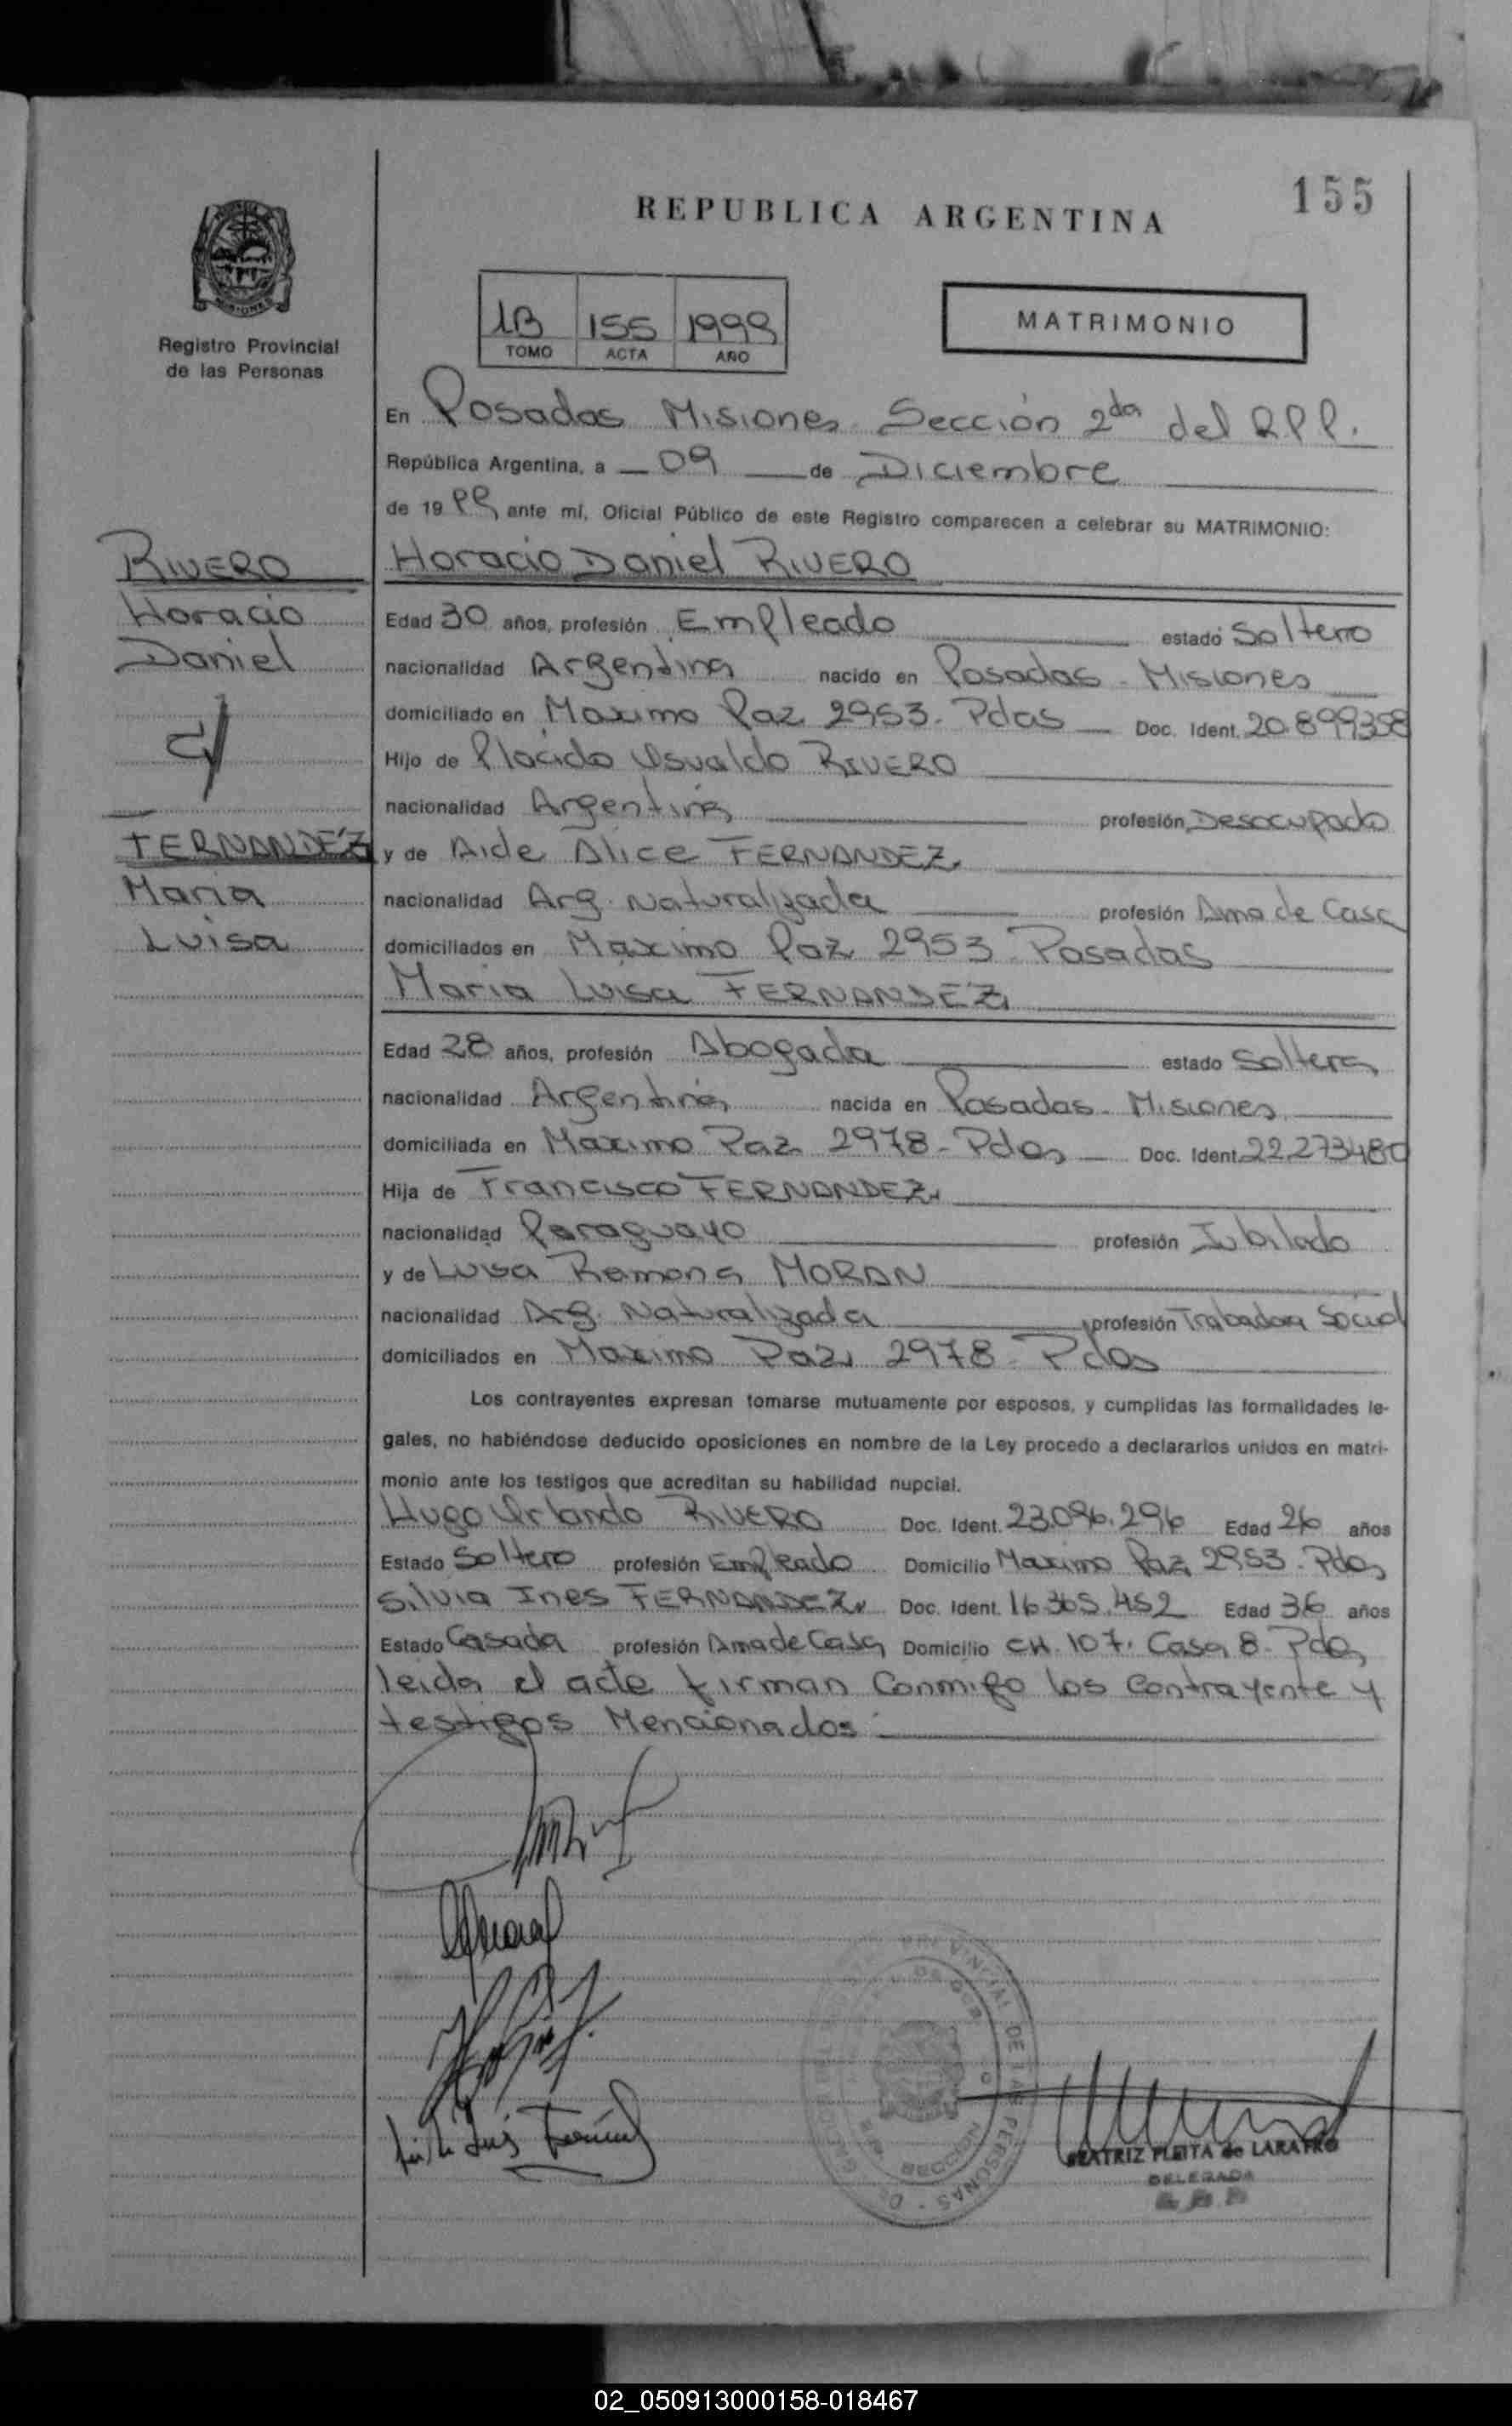 155
REPUBLICA ARGENTINA
1B 155 1999
TOMO ACTA AÑO
MATRIMONIO
Registro Provincial
de las Personas
En Posadas Misiones Sección 2da del R.P.P.
República Argentina, a 09 de Diciembre
de 19 99 ante mí, Oficial Público de este Registro comparecen a celebrar su MATRIMONIO:
RIVERO
Horacio
Daniel
y
FERNANDEZ
Maria
Luisa
Horacio Daniel RIVERO
Edad 30 años, profesión Empleado estado Soltero
nacionalidad Argentina nacido en Posadas - Misiones
domiciliado en Maximo Paz 2953 - Pdas Doc. Ident. 20.899358
Hijo de Placido Osvaldo RIVERO
nacionalidad Argentina profesión Desocupado
y de Aide Alice FERNANDEZ
nacionalidad Arg. Naturalizada profesión Ama de Casa
domiciliados en Maximo Paz 2953 - Posadas
Maria Luisa FERNANDEZ
Edad 28 años, profesión Abogada estado Soltera
nacionalidad Argentina nacida en Posadas - Misiones
domiciliada en Maximo Paz 2978 - Pdas Doc. Ident. 22.273480
Hija de Francisco FERNANDEZ
nacionalidad Paraguayo profesión Jubilado
y de Luisa Ramona MORAN
nacionalidad Arg. Naturalizada profesión Trabadora Social
domiciliados en Maximo Paz 2978 - Pdas
Los contrayentes expresan tomarse mutuamente por esposos, y cumplidas las formalidades le-
gales, no habiéndose deducido oposiciones en nombre de la Ley procedo a declararlos unidos en matri-
monio ante los testigos que acreditan su habilidad nupcial.
Hugo Orlando RIVERO Doc. Ident. 23.096.296 Edad 26 años
Estado Soltero profesión Empleado Domicilio Maximo Paz 2953 - Pdas
Silvia Ines FERNANDEZ Doc. Ident. 16.365.452 Edad 36 años
Estado Casada profesión Ama de Casa Domicilio CH. 107. Casa 8 - Pdas
leida el acta firman Conmigo los Contrayente y
testigos Mencionados:
BEATRIZ PLEITA de LARATRO
DELEGADA
02_050913000158-018467